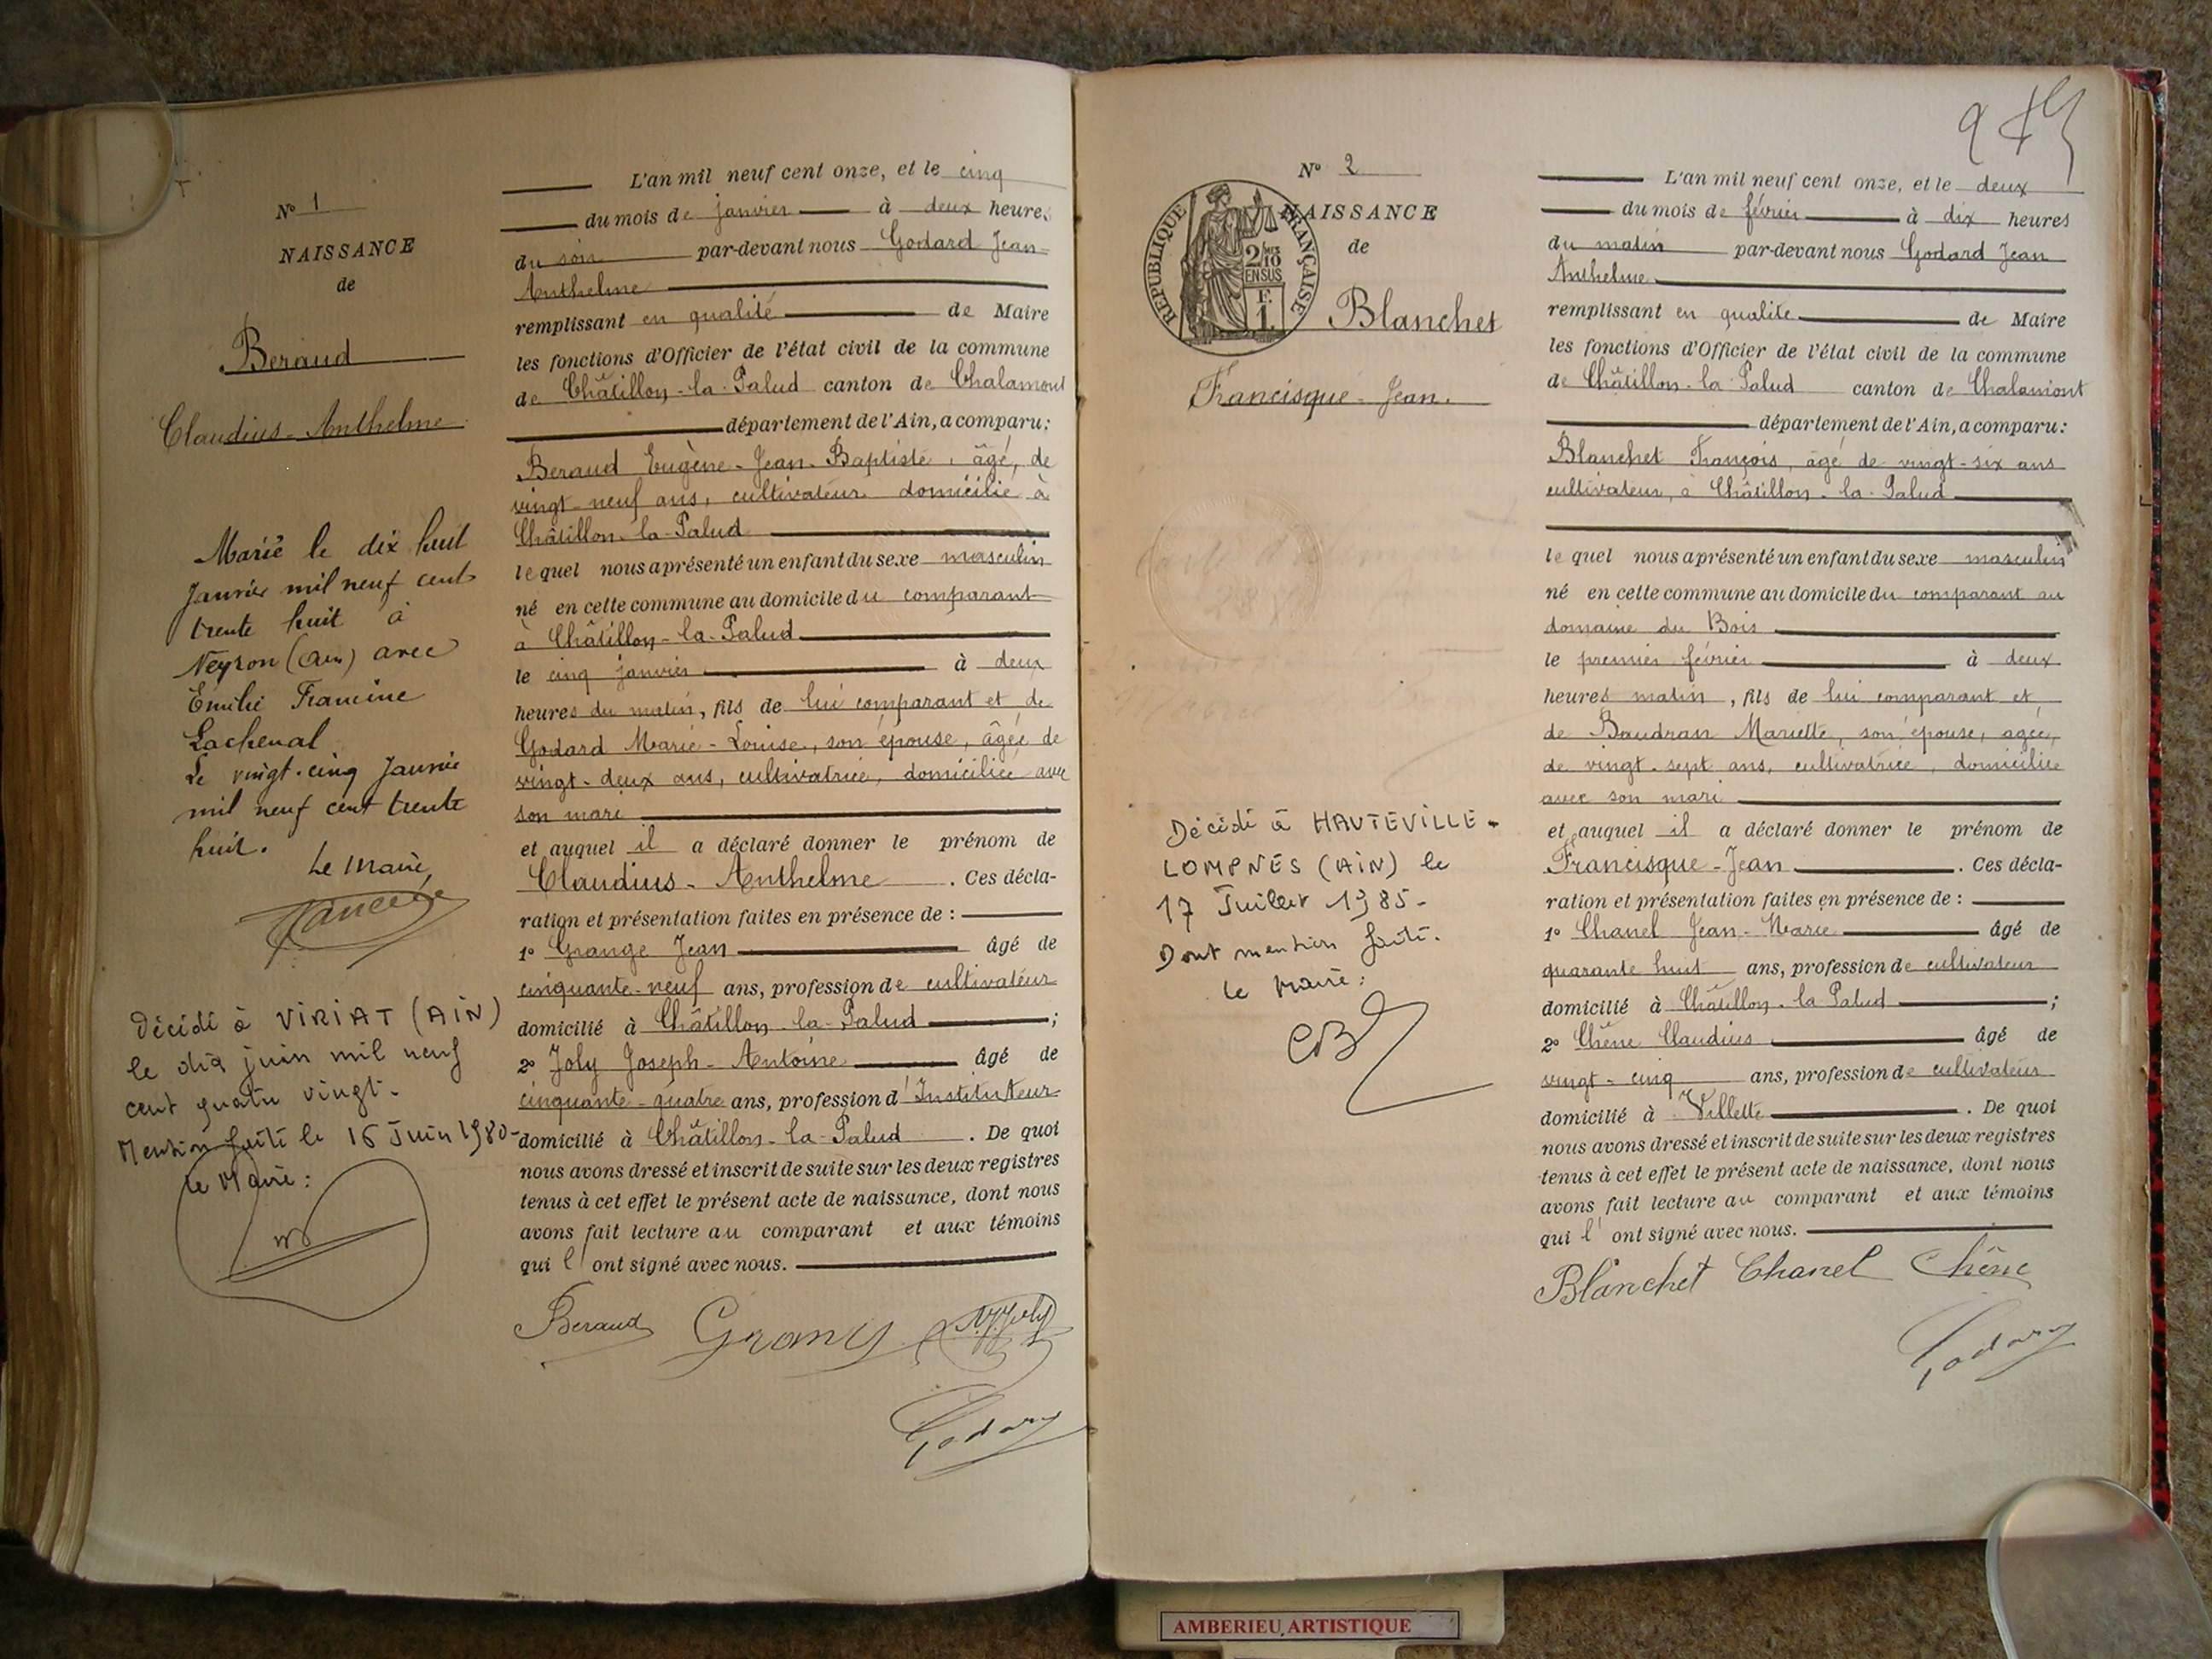 N° 1
NAISSANCE
de
Beraud
Claudius-Anthelme
Marié le dix huit
Janvier mil neuf cent
trente huit à
Neyron (Ain) avec
Emilie Francine
Lachenal
Le vingt-cinq Janvier
mil neuf cent trente
huit.
Le Maire,
Décédé à VIRIAT (AIN)
le dix juin mil neuf
cent quatre vingt-
Mention faite le 16 Juin 1980-
Le Maire:
L'an mil neuf cent onze, et le cinq
du mois de janvier à deux heures
du soir par-devant nous Godard Jean
Anthelme
remplissant en qualité de Maire
les fonctions d'Officier de l'état civil de la commune
de Châtillon-la-Palud canton de Chalamont
département de l'Ain, a comparu:
Beraud Eugène-Jean-Baptiste, âgé, de
vingt-neuf ans, cultivateur domicilié à
Châtillon-la-Palud
le quel nous a présenté un enfant du sexe masculin
né en cette commune au domicile du comparant
à Châtillon-la-Palud
le cinq janvier à deux
heures du matin, fils de lui comparant et de
Godard Marie-Louise, son épouse, âgée de
vingt-deux ans, cultivatrice, domiciliée avec
son mari
et auquel il a déclaré donner le prénom de
Claudius-Anthelme. Ces décla-
ration et présentation faites en présence de :
1° Grange Jean âgé de
cinquante-neuf ans, profession de cultivateur
domicilié à Châtillon-la-Palud ;
2° Joly Joseph-Antoine âgé de
cinquante-quatre ans, profession d'Instituteur
domicilié à Châtillon-la-Palud. De quoi
nous avons dressé et inscrit de suite sur les deux registres
tenus à cet effet le présent acte de naissance, dont nous
avons fait lecture au comparant et aux témoins
qui l'ont signé avec nous.
Beraud
Godard
N° 2
NAISSANCE
de
REPUBLIQUE FRANÇAISE
2/10
EN SUS
F.
1.
Blanchet
Francisque-Jean.
Décédé à HAUTEVILLE-
LOMPNES (AIN) le
17 Juillet 1985-
Dont mention faite.
le Maire:
L'an mil neuf cent onze, et le deux
du mois de février à dix heures
du matin par-devant nous Godard Jean
Anthelme
remplissant en qualité de Maire
les fonctions d'Officier de l'état civil de la commune
de Châtillon-la-Palud canton de Chalamont
département de l'Ain, a comparu:
Blanchet François, âgé de vingt-six ans
cultivateur, à Châtillon-la-Palud
le quel nous a présenté un enfant du sexe masculin
né en cette commune au domicile du comparant au
domaine du Bois
le premier février à deux
heures matin, fils de lui comparant et
de Baudran Mariette, son épouse, agée,
de vingt-sept ans, cultivatrice, domiciliée
avec son mari
et auquel il a déclaré donner le prénom de
Francisque-Jean. Ces décla-
ration et présentation faites en présence de :
1° Chanel Jean-Marie âgé de
quarante huit ans, profession de cultivateur
domicilié à Châtillon-la Palud ;
2° Chêne Claudius âgé de
vingt-cinq ans, profession de cultivateur
domicilié à Villette. De quoi
nous avons dressé et inscrit de suite sur les deux registres
tenus à cet effet le présent acte de naissance, dont nous
avons fait lecture au comparant et aux témoins
qui l'ont signé avec nous.
Blanchet Chanel Chêne
Godard
AMBERIEU ARTISTIQUE